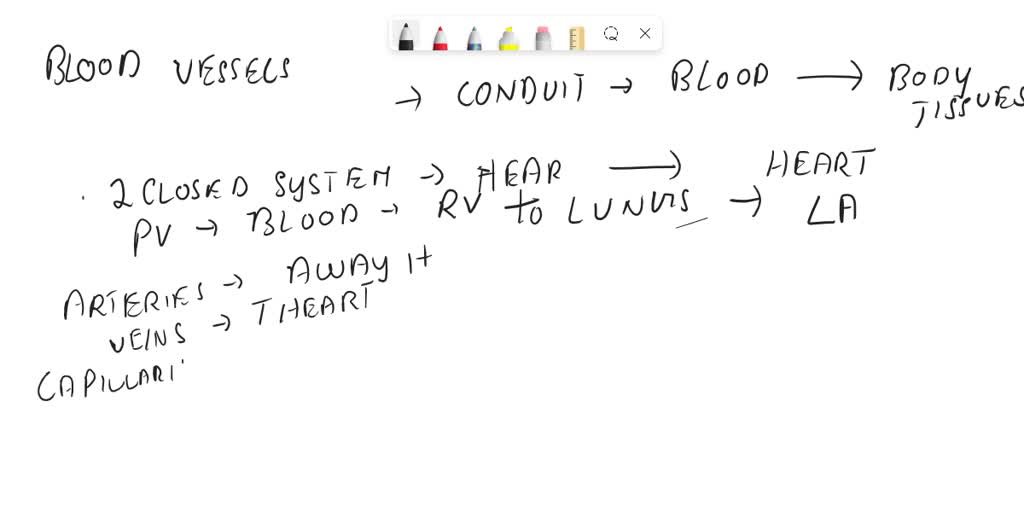 BLOOD VESSELS
→ CONDUIT → BLOOD → BODY TISSUES
. 2 CLOSED SYSTEM → HEAR → HEART
PV → BLOOD → RV to LUNGS → LA
ARTERIES → AWAY H
VEINS → T HEART
CAPILLARI